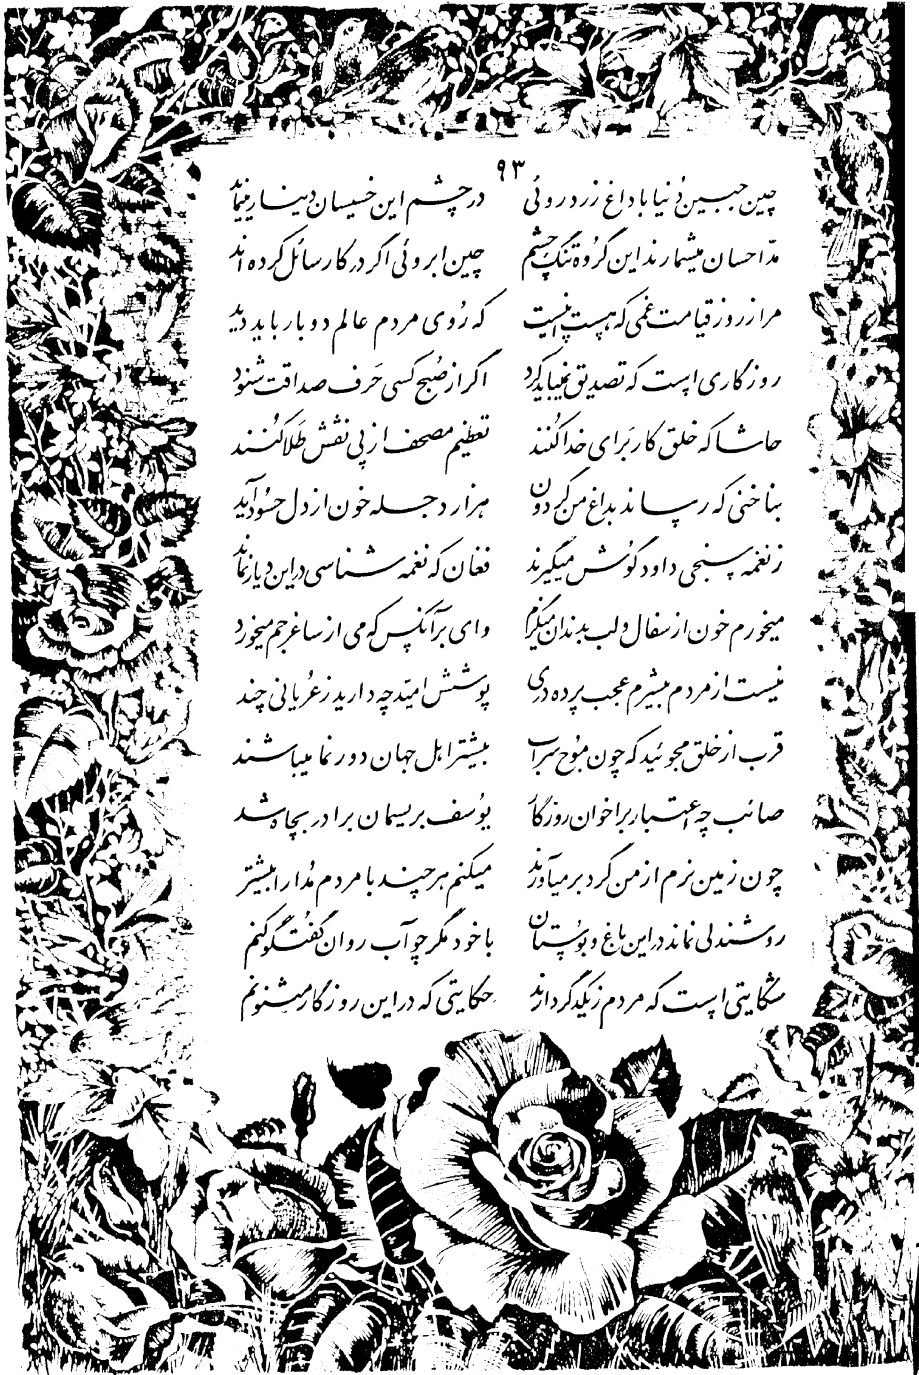 ۹۳
چین جبین دنیا با داغ زردروئی در چشم این خسیسان دینار مینماید
مدّ احسان میشمارند این گروه تنگ چشم چین ابروئی اگر در کار سائل کرده اند
مرا ز روز قیامت غمی که هست اینست که رُوی مردم عالم دوبار باید دید
روزگاری است که تصدیق نمیباید کرد اگر از صُبح کسی حَرف صداقت شنود
حاشا که خلق کار بَرای خدا کُنند تعظیم مصحف از پی نقش طَلا کُنند
بناخنی که رساند بداغ من گردون هزار دجله خون از دل حسُود آید
ز نغمه سنجی داود گوُش میگیرند فغان که نغمه شناسی دراین دیار نماند
میخورم خون از سفال و لب بدندان میگزم وای بر آنکس که می از ساغر جم میخورد
نیست از مردم بیشرم عجب پرده دری پوشش امیّد چه دارید ز عُریانی چند
قرب از خلق مجوئید که چون مَوُج سراب بیشتر اهل جهان دورنما میباشند
صائب چه اعتبار بر اخوان روزگار یُوسف بریسمان برادر بچاه شد
چون زمین نرم از من گرد برمیآورند میکنم هرچند با مردم مُدارا بیشتر
روشندلی نماند دراین باغ و بُوستان با خود مگر چو آب روان گفُتگو کنم
شکایتی است که مردم ز یکدگر دارند حکایتی که دراین روزگار میشنوم